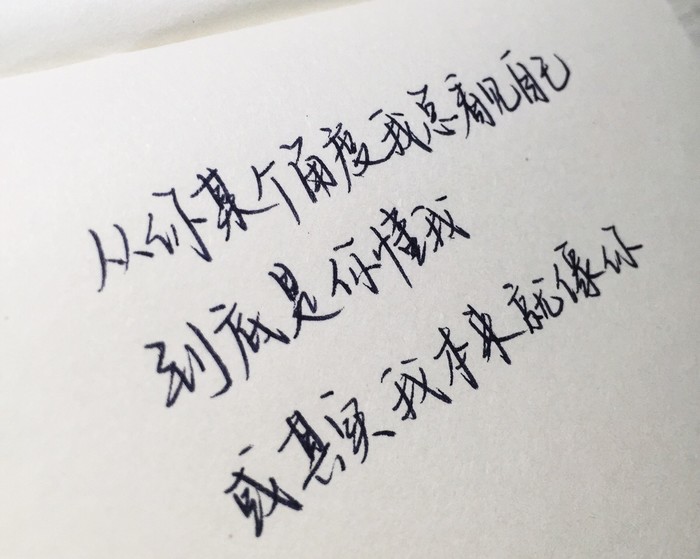 从你某个角度我总看见自己
到底是你懂我
或其实我本来就像你